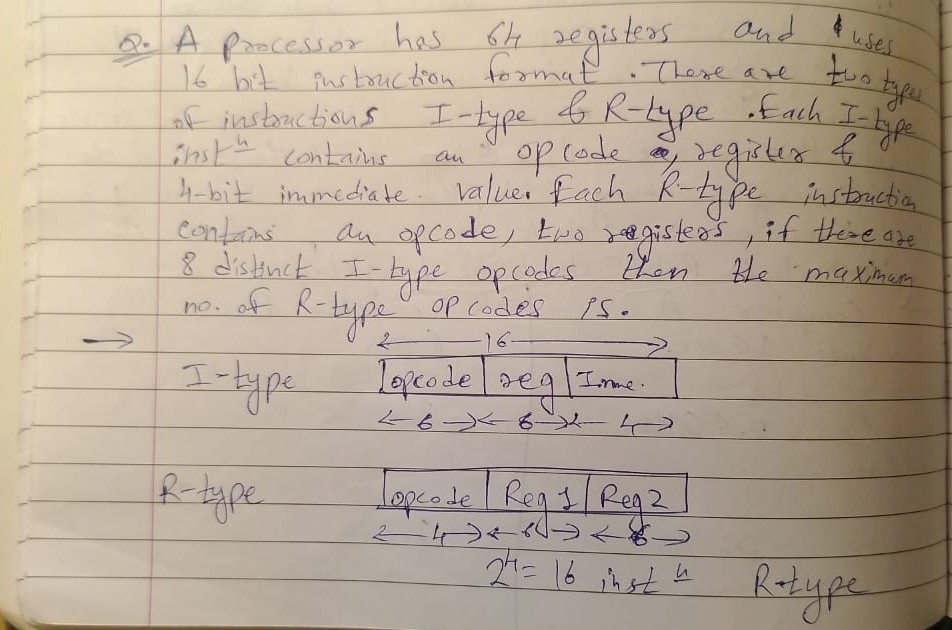 Q. A processor has 64 registers and uses
16 bit instruction format. There are two types
of instructions I-type & R-type. Each I-type
instⁿ contains an op code, register &
4-bit immediate. value. Each R-type instruction
contains an opcode, two registers, if there are
8 distinct I-type opcodes then the maximum
no. of R-type op codes is.
→ 16
I-type opcode reg Imme.
6 6 4
R-type opcode Reg 1 Reg 2
4 6 6
2⁴ = 16 instⁿ R-type